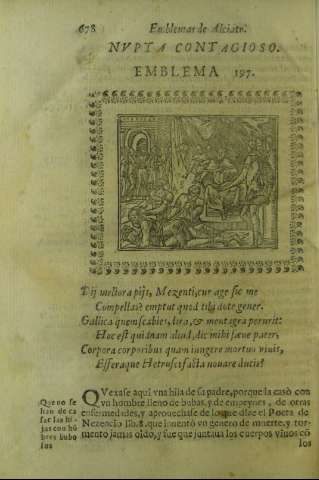 678 Emblemas de Alciato.
NVPTA CONTAGIOSO.
EMBLEMA 197.
Dij meliora pijs, Mezenti, cur age sic me
Compellas? emptus quod tibi dote gener.
Gallica quem scabies, dira, & mentagra perurit:
Hoc est quidnam aliud, dic mihi sæue pater,
Corpora corporibus quam iungere mortua viuis,
Efferaque Hetrusci facta nouare ducis?
QVexase aqui vna hija de su padre, porque la casò con
vn hombre lleno de bubas, y de empeynes, de otras
enfermedades, y aprouechase de lo que dize el Poeta de
Nezencio lib. 8. que inuentò vn genero de muerte, y tor-
mento jamas oido, y fue que juntaua los cuerpos viuos cō
los
Que no se
han de ca
sar las hi-
jas con hō
bres bubo
sos